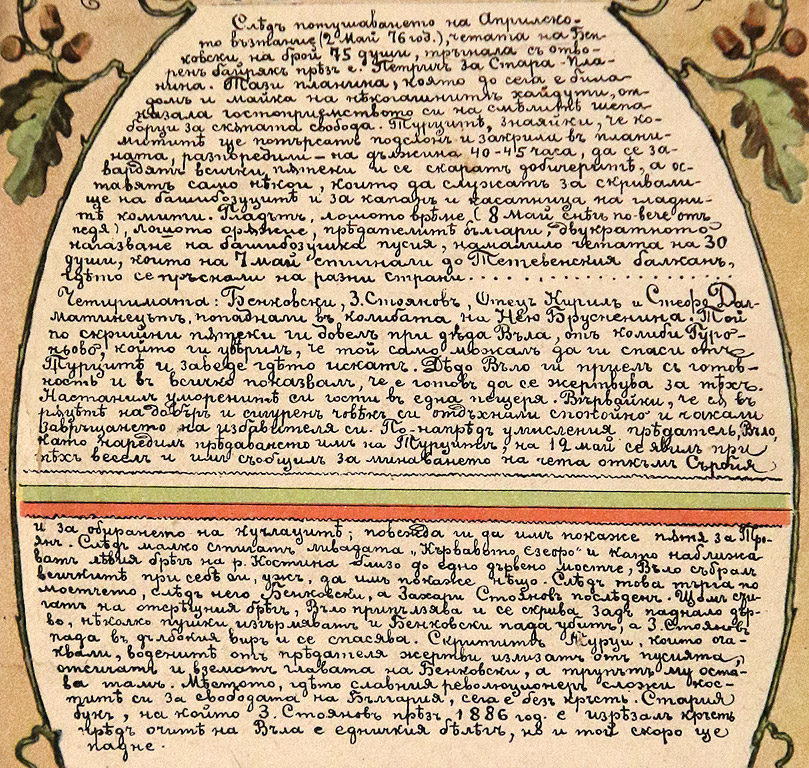 Слѣдъ потушаването на Априлско-
то възтание (2 Май 76 год.), четата на Бен-
ковски на брой 75 души, тръгнала съ отво-
ренъ байрякъ прѣзъ с. Петричъ за Стара-Пла-
нина. Тази планина, която до сега е била
домъ и майка на нѣкогашнитѣ хайдути, от-
казала гостоприемството си на смѣлитѣ шепа
борци за скѫпата свобода. Турцитѣ, знаяйки, че ко-
мититѣ ще потърсатъ подслонъ и закрила въ плани-
ната, разпоредили — на дължина 40-45 часа, да се за-
вардятъ всички пѫтеки и се скаратъ добичеритѣ, а ос-
тавятъ само нѣкои, които да служатъ за скривали-
ще на башибозуцитѣ и за капанъ и касапница на гладни-
тѣ комити. Гладътъ, лошото врѣме (8 Май снѣгъ повече отъ
педя), лошото орѫжие, прѣдателитѣ българи, двукратното
нагазване на башибозушка пусия, намалило четата на 30
души, които на 7 май стигнали до Тетевенския балканъ,
гдѣто се пръснали на разни страни.
Четиримата: Бенковски, З. Стояновъ, Отецъ Кирилъ и Стефо Дал-
матинецътъ, попаднали въ колибата на Нею Брусненина. Той
по скришни пѫтеки ги довелъ при дѣда Въла, отъ колиби
който ги увѣрилъ, че той само можалъ да ги спаси отъ
Турцитѣ и заведе гдѣто искатъ. Дѣдо Въло ги приелъ съ готов-
ность и въ всичко показвалъ, че е готовъ да се жертвува за тѣхъ.
Настанилъ уморенитѣ си гости въ една пещеря. Вѣрвайки, че сѫ въ
рѫцѣтѣ на добъръ и смиренъ човѣкъ си отдъхнали спокойно и чакали
завръщането на избавителя си. По-напрѣдъ умисления прѣдатель, Въло,
като наредилъ прѣдаването имъ на Турцитѣ, на 12 май се явилъ при
тѣхъ веселъ и имъ съобщилъ за минаването на чета откъмъ Сърбия
и за обирането на кучлацитѣ; повежда ги да имъ покаже пѫтя за Тро-
янъ. Слѣдъ малко стигатъ ливадата „Кървавото Езеро“ и като наближа-
ватъ лѣвия брѣгъ на р. Костина близо до едно дървено мостче, Въло събралъ
всичкитѣ при себе си, ужъ, да имъ покаже нѣщо. Слѣдъ това тръгва по
мостчето, слѣдъ него Бенковски, а Захари Стояновъ послѣденъ. Щомъ сти-
гатъ на отсрѣщния брѣгъ, Въло приплязва и се скрива задъ паднало дър-
во, нѣколко пушки изгърмяватъ и Бенковски пада убитъ, а З. Стояновъ
пада въ дълбокия виръ и се спасява. Скрититѣ Турци, които оча-
квали, воденитѣ отъ прѣдателя жертви излизатъ отъ пусията,
отсичатъ и взематъ главата на Бенковски, а трупътъ му оста-
ва тамъ. Мѣстото, гдѣто славния революционеръ сложи кос-
титѣ си за свободата на България, сега е безъ кръстъ. Стария
букъ, на който З. Стояновъ прѣзъ 1886 год. е изрѣзалъ кръстъ
прѣдъ очитѣ на Въла е едничкия бѣлѣгъ, но и той скоро ще
падне.